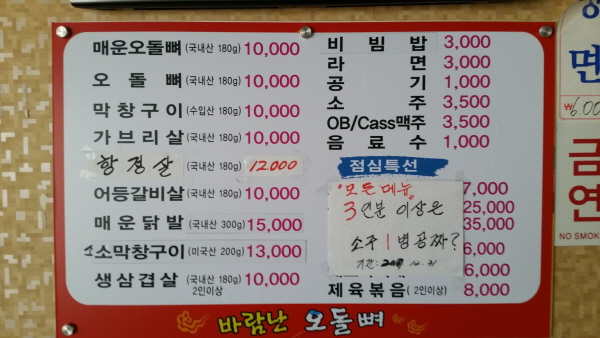 매운오돌뼈 (국내산 180g) 10,000
오돌뼈 (국내산 180g) 10,000
막창구이 (수입산 180g) 10,000
가브리살 (국내산 180g) 10,000
항정살 (국내산 180g) 12000
어등갈비살 (국내산 180g) 10,000
매운닭발 (국내산 300g) 15,000
소소막창구이 (미국산 200g) 13,000
생삼겹살 (국내산 180g) 10,000
2인이상
비빔밥 3,000
라면 3,000
공기 1,000
소주 3,500
OB/Cass맥주 3,500
음료수 1,000
점심특선
"모든메뉴"
3인분 이상은
소주 1병공짜?
기간:
7,000
25,000
35,000
6,000
6,000
제육볶음 (2인이상) 8,000
바람난 오돌뼈
면
₩6,00
금
연
NO SMOK